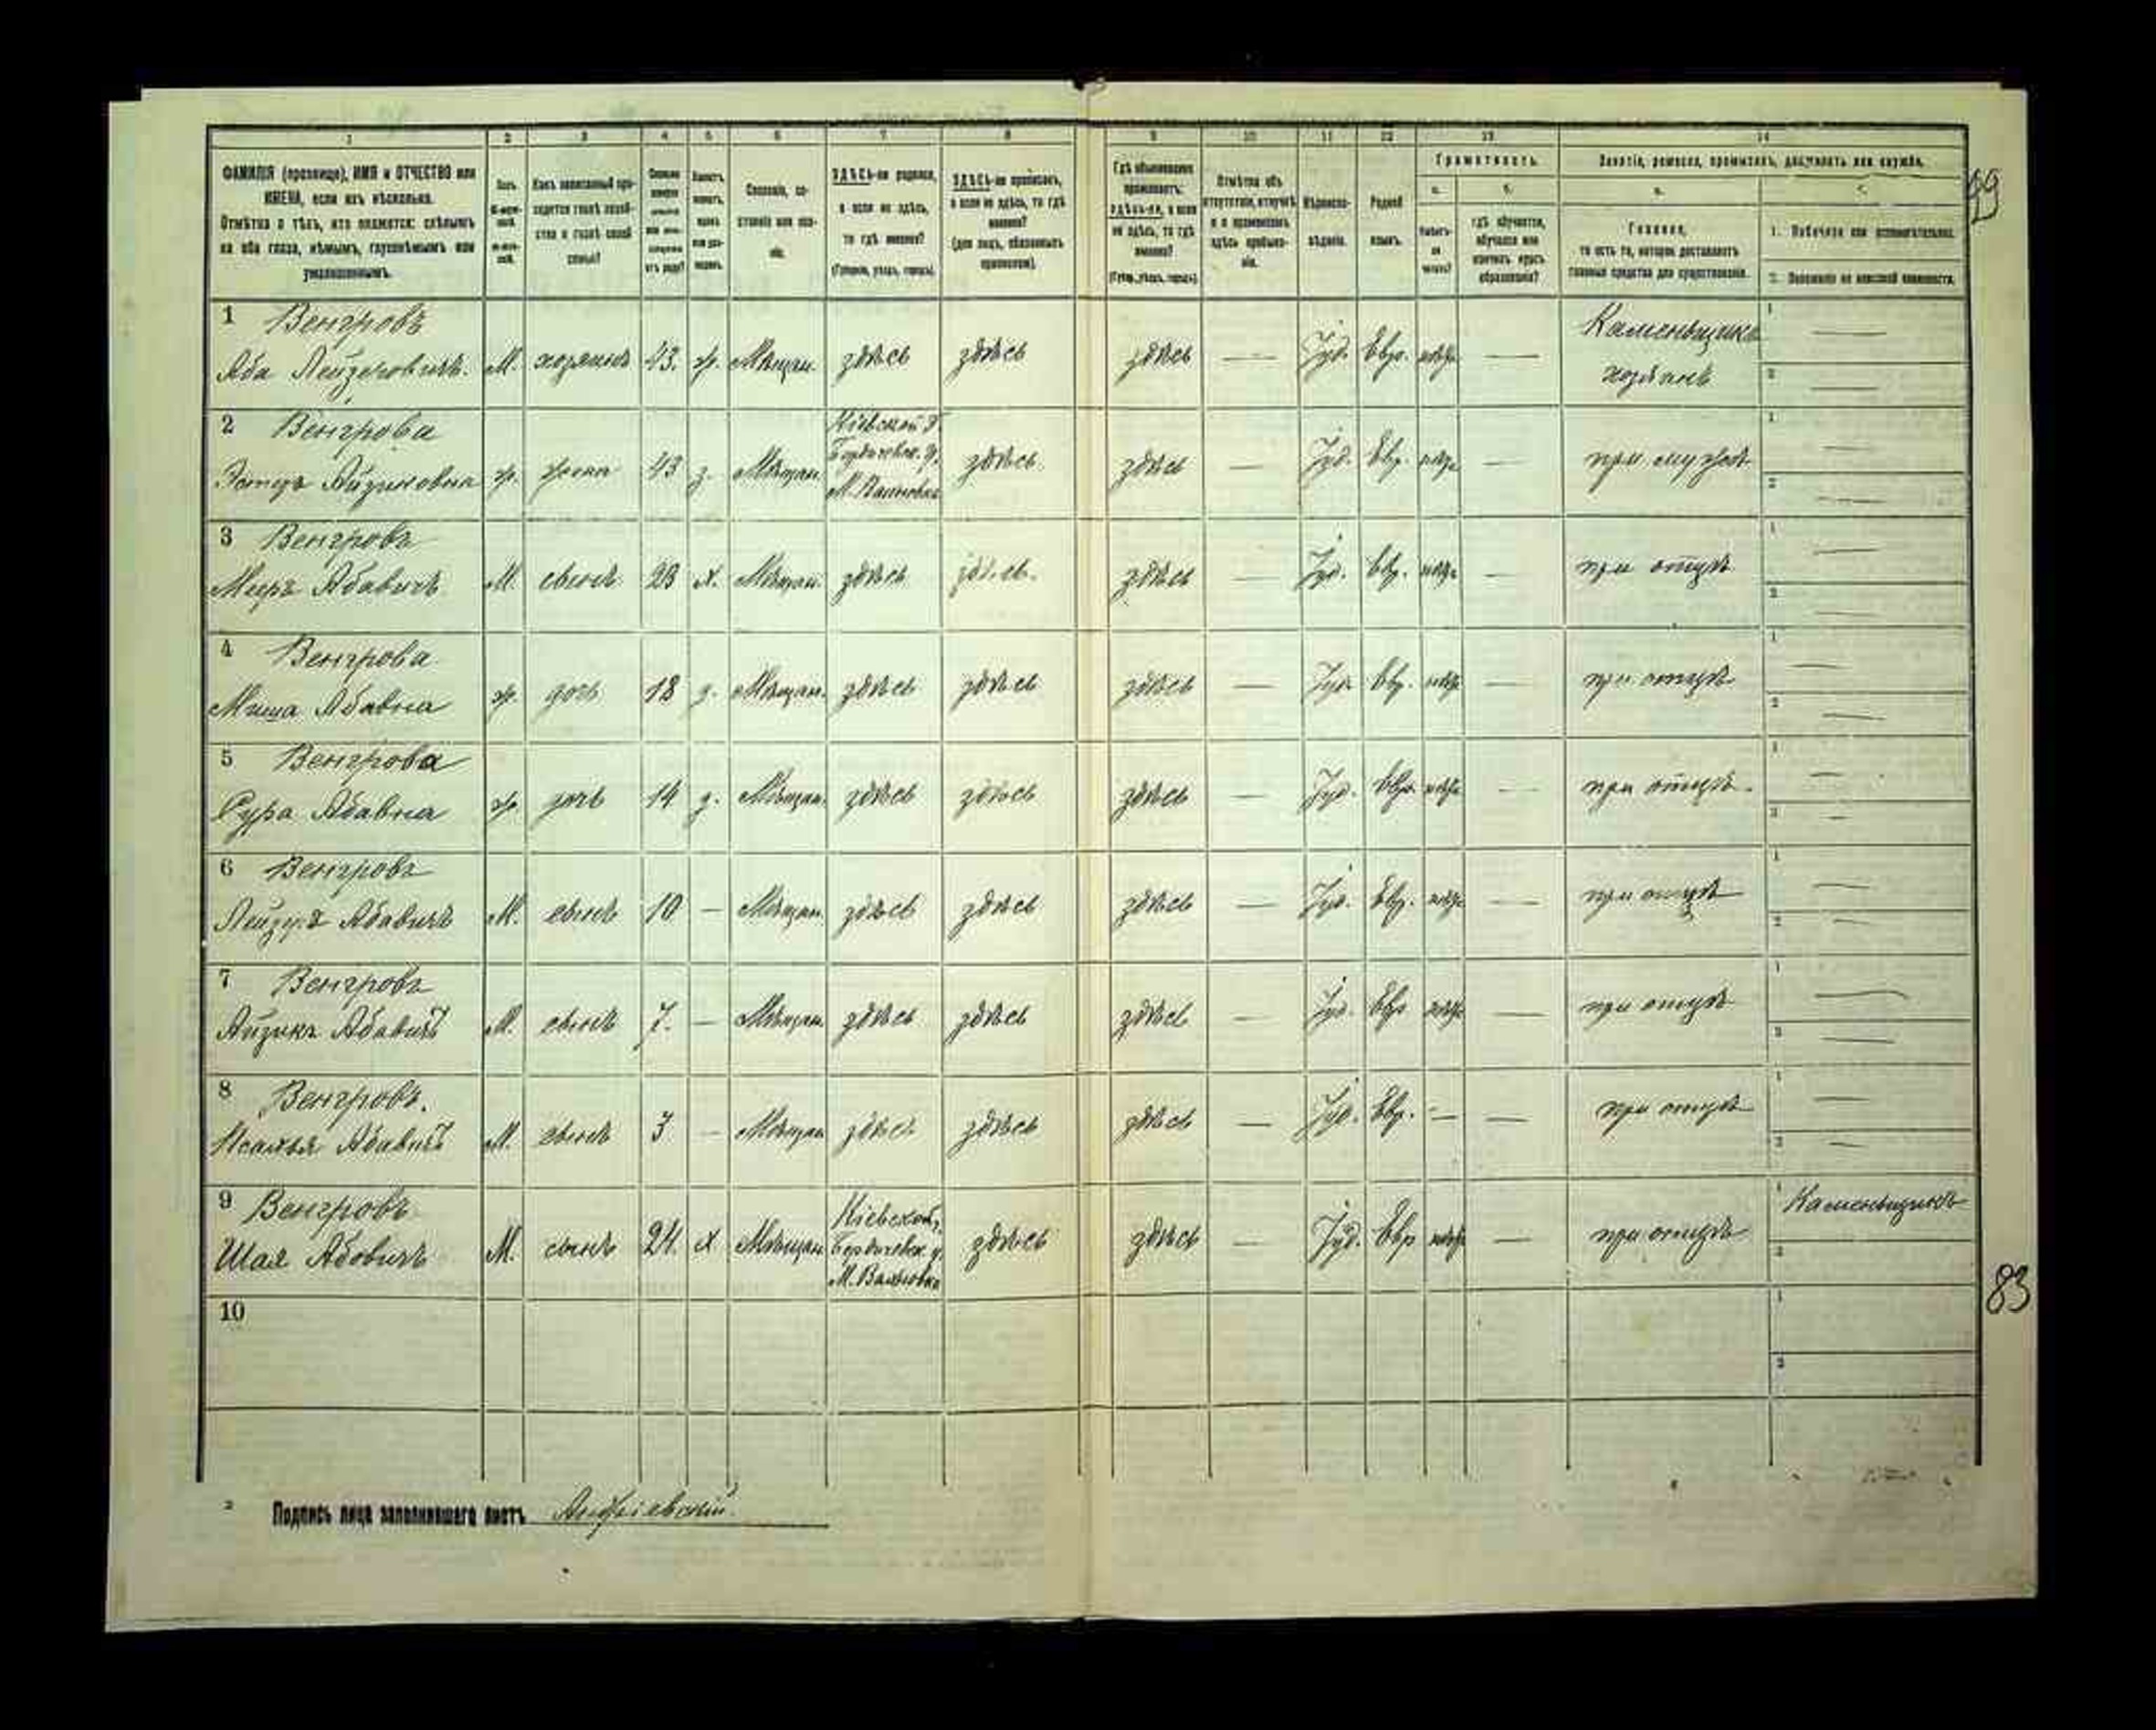 1 2 3 4 5 6 7 8 9 10 11 12 13 14
ФАМИЛІЯ (прозвище), ИМЯ и ОТЧЕСТВО или
ИМЕНА, если ихъ нѣсколько.
Отмѣтка о тѣхъ, кто окажется: слѣпымъ
на оба глаза, нѣмымъ, глухонѣмымъ или
умалишеннымъ.
Полъ.
Какъ записанный при-
ходится главѣ хозяй-
ства и главѣ своей
семьи?
Сословіе, со-
стояніе или зва-
ніе.
ЗДѢСЬ-ли родился,
а если не здѣсь,
то гдѣ именно?
(Губернія, уѣздъ, городъ).
ЗДѢСЬ-ли приписанъ,
а если не здѣсь, то гдѣ
именно?
(для лицъ, обязанныхъ
припискою).
Гдѣ обыкновенно
проживаетъ:
здѣсь-ли, а если
не здѣсь, то гдѣ
именно?
(Губ., уѣздъ, городъ).
Отмѣтка объ
отсутствіи, отлучкѣ
и о временномъ
здѣсь пребыва-
ніи.
Вѣроиспо-
вѣданіе.
Родной
языкъ.
Грамотность.
а. б.
гдѣ обучается,
обучался или
кончилъ курсъ
образованія?
Занятіе, ремесло, промыселъ, должность или служба.
Главное,
то есть то, которое доставляетъ
главныя средства для существованія.
1. Побочное или вспомогательное.
2. Положеніе по воинской повинности.
29
1 Венгровъ
Аба Лейзеровичъ. М. хозяинъ 43. ж. Мѣщан. здѣсь здѣсь здѣсь — Іуд. Евр. нѣтъ — Каменьщикъ
хозяинъ 1 — 2 —
2 Венгрова
Эстеръ Айзиковна ж. жена 43 з. Мѣщан. Кіевской Г.
Бердичевск. у.
здѣсь здѣсь — Іуд. Евр. нѣтъ — при мужѣ 1 — 2 —
3 Венгровъ
Мееръ Абавичъ М. сынъ 23 х. Мѣщан. здѣсь здѣсь здѣсь — Іуд. Евр. нѣтъ — при отцѣ 1 — 2 —
4 Венгрова
Абавна ж. дочь 18 д. Мѣщан. здѣсь здѣсь здѣсь — Іуд. Евр. нѣтъ — при отцѣ 1 — 2 —
5 Венгрова
Сура Абавна ж. дочь 14 д. Мѣщан. здѣсь здѣсь здѣсь — Іуд. Евр. нѣтъ — при отцѣ. 1 — 2 —
6 Венгровъ
Лейзеръ Абавичъ М. сынъ 10 — Мѣщан. здѣсь здѣсь здѣсь — Іуд. Евр. нѣтъ — при отцѣ 1 — 2 —
7 Венгровъ
Айзикъ Абавичъ М. сынъ 7. — Мѣщан. здѣсь здѣсь здѣсь — Іуд. Евр нѣтъ — при отцѣ 1 — 2 —
8 Венгровъ.
Абавичъ М. сынъ 3 — Мѣщан здѣсь здѣсь здѣсь — Іуд. Евр. — — при отцѣ 1 — 2 —
9 Венгровъ
Шая Абовичъ М. сынъ 24. х Мѣщан Кіевской,
Бердичевск. у.
М. Вахновка здѣсь здѣсь — Іуд. Евр нѣтъ — при отцѣ 1 Каменьщикъ 2
83
10 1 2
2 Подпись лица заполнившаго листъ Андріевскій.